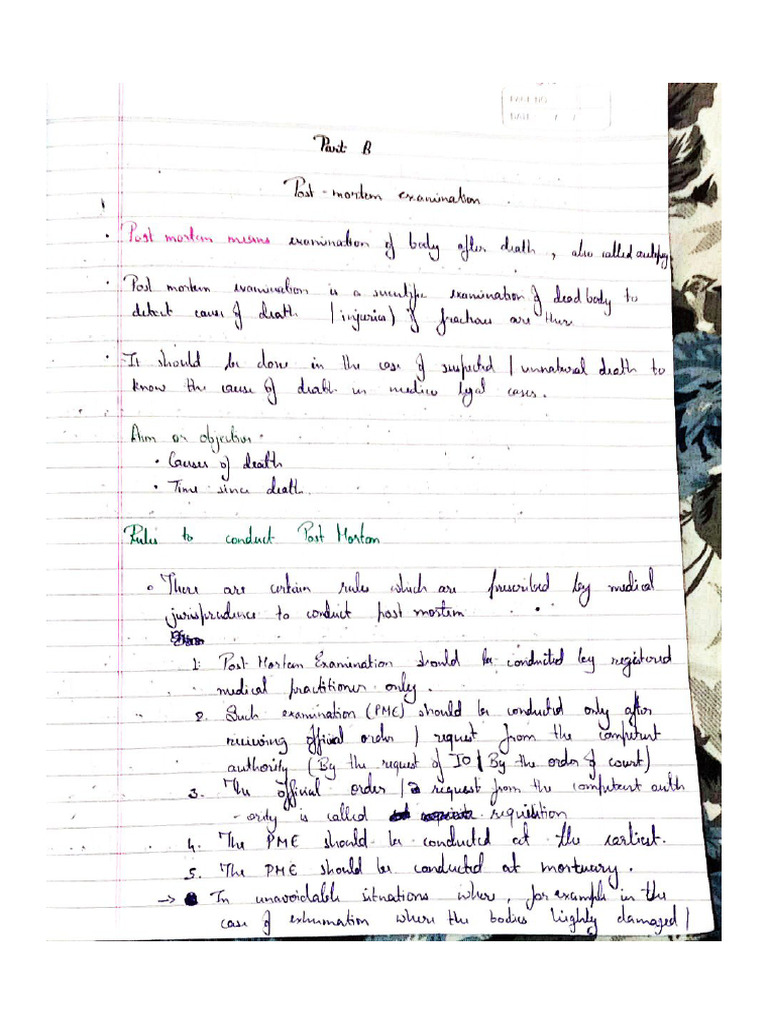 PAGE NO.
DATE / /
Part B
Post-mortem examination
• Post mortem means examination of body after death, also called autopsy
• Post mortem examination is a scientific examination of dead body to
detect cause of death / injuries) if fractions are ther
• It should be done in the case of suspected / unnatural death to
know the cause of death in medico legal cases.
Aim or objective
• Causes of death
• Time since death.
Rules to conduct Post Mortem
• There are certain rules which are prescribed by medical
jurisprudence to conduct post mortem
1. Post Mortem Examination should be conducted by registered
medical practitioner only.
2. Such examination (PME) should be conducted only after
receiving official order / request from the competent
authority (By the request of IO / By the order of court)
3. The official order / request from the competent auth
-ority is called requisition
4. The PME should be conducted at the earliest.
5. The PME should be conducted at mortuary.
→ In unavoidable situations where, for example in the
case of exhumation where the bodies highly damaged /